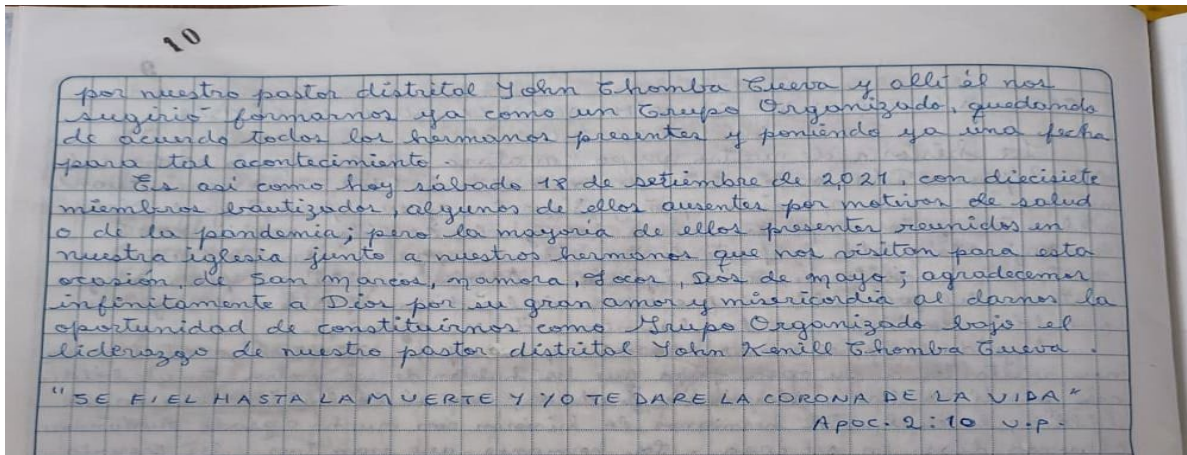 10
por nuestro pastor distrital John Chomba Cueva y allí él nos
sugirió formarnos ya como un Grupo Organizado, quedando
de acuerdo todos los hermanos presentes y poniendo ya una fecha
para tal acontecimiento.
Es así como hoy sábado 18 de setiembre de 2,021, con diecisiete
miembros bautizados, algunos de ellos ausentes por motivos de salud
o de la pandemia; pero la mayoría de ellos presentes reunidos en
nuestra iglesia junto a nuestros hermanos que nos visitan para esta
ocasión, de San Marcos, Mamora, Jocos, Dos de Mayo; agradecemos
infinitamente a Dios por su gran amor y misericordia al darnos la
oportunidad de constituirnos como Grupo Organizado bajo el
liderazgo de nuestro pastor distrital John Kenill Chomba Cueva.
"SE FIEL HASTA LA MUERTE Y YO TE DARE LA CORONA DE LA VIDA"
APOC. 2:10 U.P.